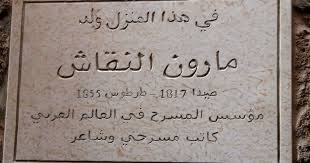 في هذا المنزل ولد
مارون النقاش
صيدا 1817 - طرطوس 1855
مؤسس المسرح في العالم العربي
كاتب مسرحي وشاعر